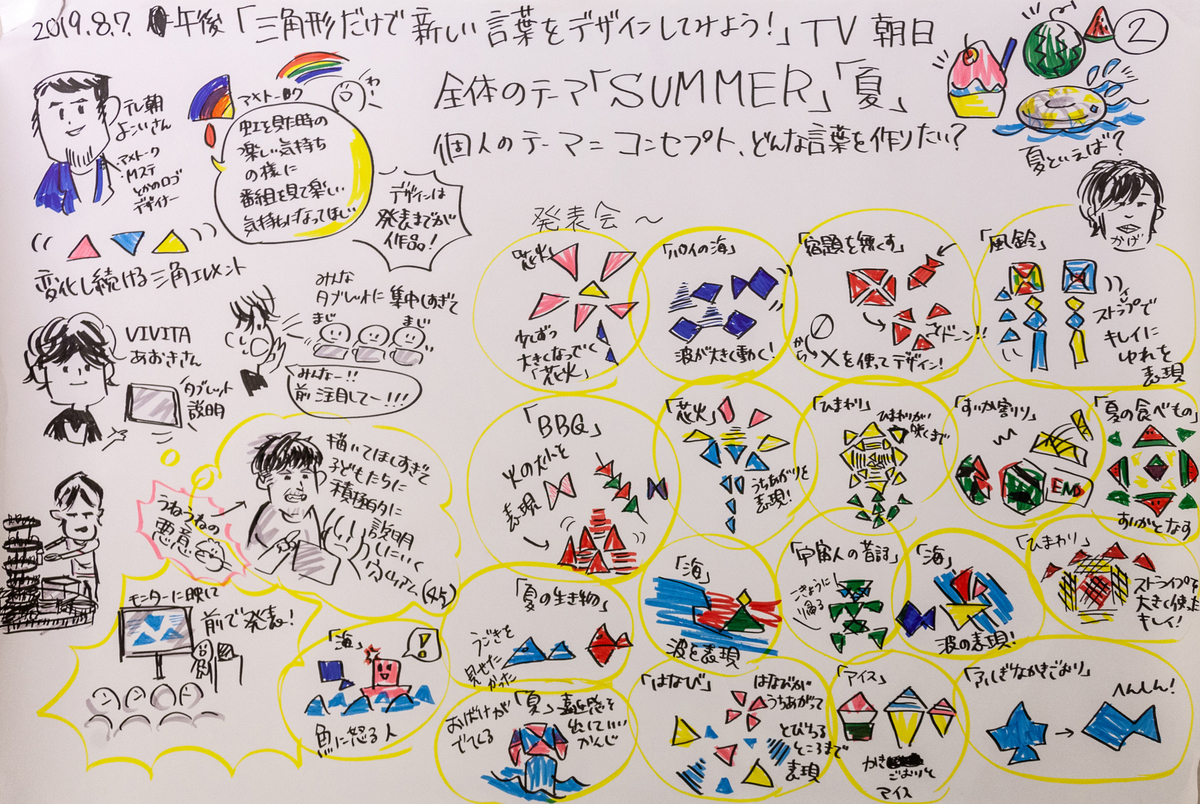 2019.8.7. 午後「三角形だけで新しい言葉をデザインしてみよう!」TV朝日
②
全体のテーマ「SUMMER」「夏」
個人のテーマ=コンセプト、どんな言葉を作りたい?
夏といえば?
テレ朝
よこいさん
・アメトーク
・Mステ
とかのロゴ
デザイナー
アメトーーク
わーい
虹を見た時の
楽しい気持ち
の様に
番組を見て楽しい
気持ちになってほしい
デザインは
発表までが
作品!
変化し続ける三角エレメント
VIVITA
あおきさん
タブレット
説明
みんな
タブレットに集中しすぎて
まじ
まじ
みんなー!!
前注目してー!!!
描いてほしすぎて
子どもたちに
積極的に
説明
しにいく
うねうねの
悪意
モニターに映して
前で発表!
発表会〜
かげ
「花火」
大きくなってく
「花火」
「パイの海」
波が大きく動く!
「宿題を無くす」
ドーン!!
から
×を使ってデザイン!
「風鈴」
ストラップで
キレイに
ゆれを
表現
「BBQ」
火の
表現
「花火」
うちあがりを
表現!
「ひまわり」
ひまわりが
咲くまで
「すいか割り」
END
「夏の食べもの」
すいかとなす
「夏の生き物」
うごきを
見せた
かった
「海」
波を表現
「宇宙人の昔話」
「海」
波の表現!
「ひまわり」
ストライプを
大きく使った
キレイ!
「海」
!
急に怒る人
「夏」
おばけが
でてくる
「はなび」
はなびが
うちあがって
とびちる
ところまで
表現
「アイス」
かきごおりと
アイス
「ふしぎなかきごおり」
へんしん!